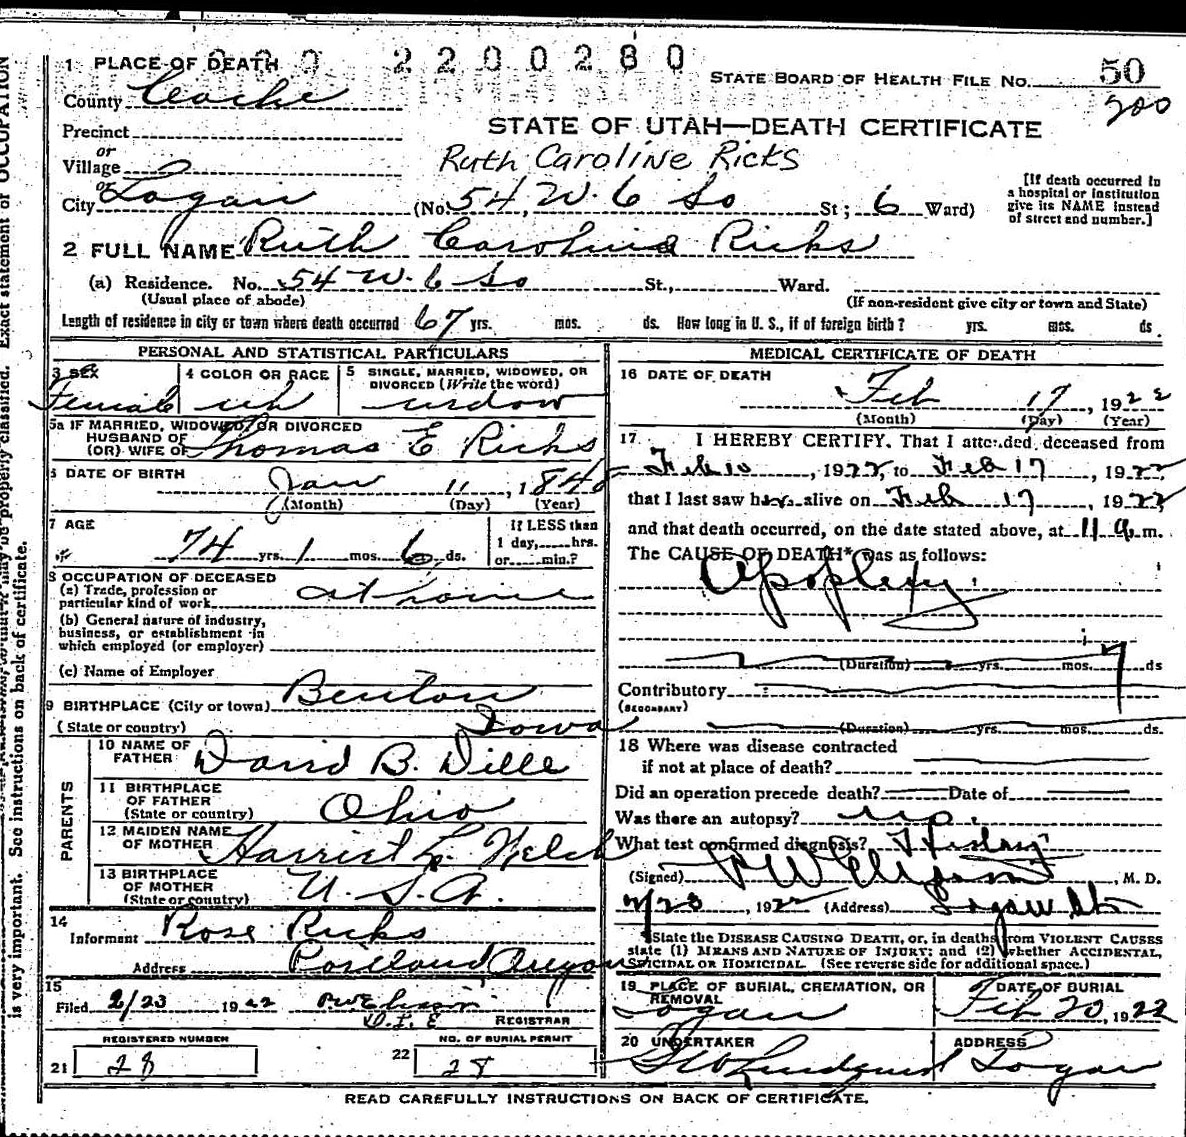 2200280
1 PLACE OF DEATH
STATE BOARD OF HEALTH FILE No. 50
200
County Cache
STATE OF UTAH—DEATH CERTIFICATE
Precinct
or
Ruth Caroline Ricks
Village
or
City Logan (No. 54 W. 6 So St; 6 Ward)
[If death occurred in a hospital or institution give its NAME instead of street and number.]
2 FULL NAME Ruth Caroline Ricks
(a) Residence. No. 54 W. 6 So St., Ward.
(Usual place of abode) (If non-resident give city or town and State)
Length of residence in city or town where death occurred 67 yrs. mos. ds. How long in U. S., if of foreign birth? yrs. mos. ds.
PERSONAL AND STATISTICAL PARTICULARS
3 SEX
Female
4 COLOR OR RACE
wh
5 SINGLE, MARRIED, WIDOWED, OR
DIVORCED (Write the word)
widow
5a IF MARRIED, WIDOWED, OR DIVORCED
HUSBAND OF
(OR) WIFE OF Thomas E Ricks
6 DATE OF BIRTH
Jan 11, 184
(Month) (Day) (Year)
7 AGE
74 yrs. 1 mos. 6 ds.
If LESS than
1 day, hrs.
or min.?
8 OCCUPATION OF DECEASED
(a) Trade, profession or
particular kind of work at home
(b) General nature of industry,
business, or establishment in
which employed (or employer)
(c) Name of Employer
9 BIRTHPLACE (City or town) Benton
(State or country) Iowa
PARENTS
10 NAME OF
FATHER David B. Dille
11 BIRTHPLACE
OF FATHER
(State or country) Ohio
12 MAIDEN NAME
OF MOTHER Harriet L. Welch
13 BIRTHPLACE
OF MOTHER
(State or country) U. S. A.
14
Informant Rose Ricks
Address Portland Oregon
15
Filed 2/23 1922
REGISTRAR
REGISTERED NUMBER
21 28
NO. OF BURIAL PERMIT
22 28
MEDICAL CERTIFICATE OF DEATH
16 DATE OF DEATH
Feb 17, 1922
(Month) (Day) (Year)
17 I HEREBY CERTIFY, That I attended deceased from
Feb 10, 1922, to Feb 17, 1922
that I last saw her alive on Feb 17, 1922
and that death occurred, on the date stated above, at 11 a.m.
The CAUSE OF DEATH* was as follows:
Apoplexy
(Duration) yrs. mos. 7 ds
Contributory
(SECONDARY)
(Duration) yrs. mos. ds.
18 Where was disease contracted
if not at place of death?
Did an operation precede death? Date of
Was there an autopsy? no.
What test confirmed diagnosis? History
(Signed) , M. D.
2/23, 1922 (Address) Logan Ut
*State the DISEASE CAUSING DEATH, or, in deaths from VIOLENT CAUSES
state (1) MEANS AND NATURE OF INJURY; and (2) whether ACCIDENTAL,
SUICIDAL OR HOMICIDAL. (See reverse side for additional space.)
19 PLACE OF BURIAL, CREMATION, OR
REMOVAL
Logan
DATE OF BURIAL
Feb 20, 1922
20 UNDERTAKER
ADDRESS
Logan
READ CAREFULLY INSTRUCTIONS ON BACK OF CERTIFICATE.
may be properly classified. Exact statement of OCCUPATION
is very important. See instructions on back of certificate.